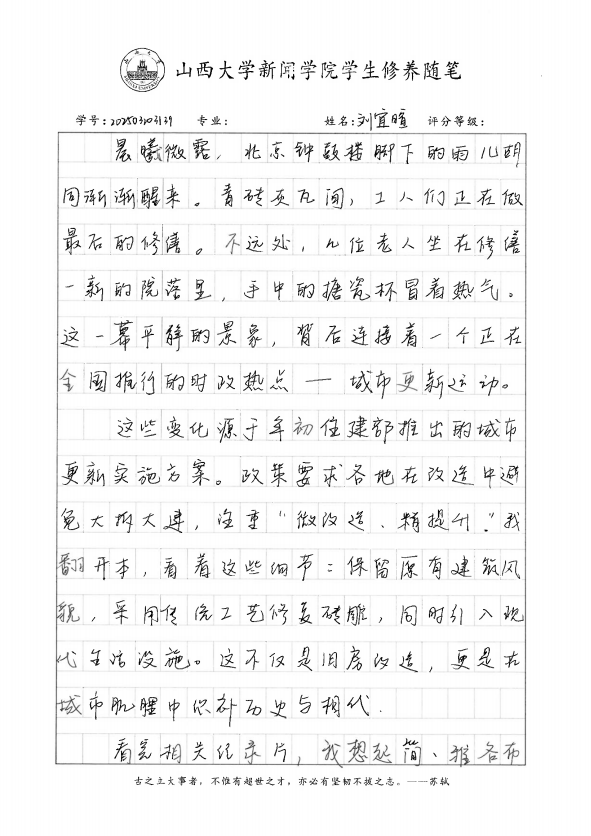 山西大学新闻学院学生修养随笔
学号:202503103139 专业: 姓名:刘宜暄 评分等级:
晨曦微露，北京钟鼓楼脚下的雨儿胡
同渐渐醒来。青砖灰瓦间，工人们正在做
最后的修缮。不远处，几位老人坐在修缮
一新的院落里，手中的搪瓷杯冒着热气。
这一幕平静的景象，背后连接着一个正在
全国推行的时政热点——城市更新运动。
这些变化源于年初住建部推出的城市
更新实施方案。政策要求各地在改造中避
免大拆大建，注重“微改造、精提升”。我
翻开本，看着这些细节：保留原有建筑风
貌，采用传统工艺修复砖雕，同时引入现
代生活设施。这不仅是旧房改造，更是在
城市肌理中织补历史与相代.
看完相关纪录片，我想起简·雅各布
古之立大事者，不惟有超世之才，亦必有坚韧不拔之志。——苏轼